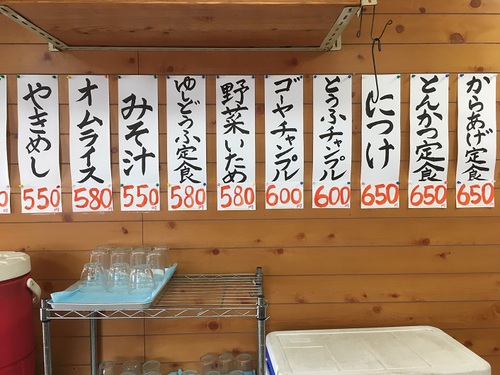 からあげ定食
650
とんかつ定食
650
につけ
650
とうふチャンプル
600
ゴーヤチャンプル
600
野菜いため
580
ゆどうふ定食
580
みそ汁
550
オムライス
580
やきめし
550
0